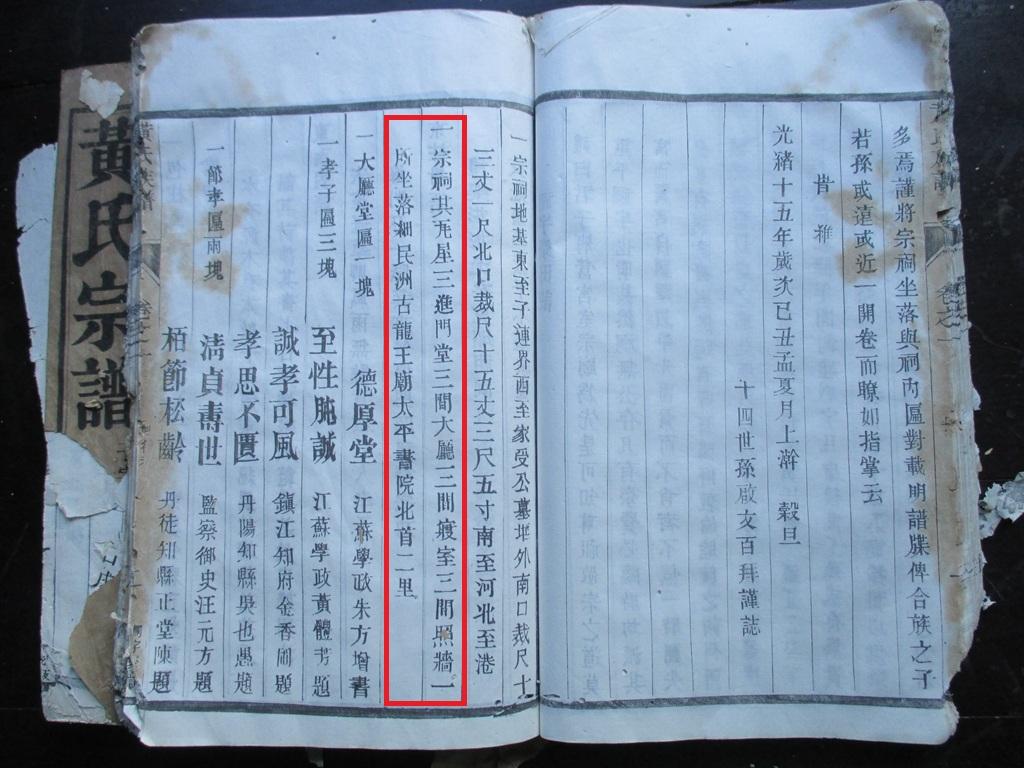 多焉謹將宗祠坐落與祠內區對載明譜牒俾合族之子
若孫或遠或近一開卷而瞭如指掌云
皆
光緒十五年歲次己丑孟夏月上澣 穀旦
十四世孫啟友百拜謹誌
一宗祠地基東至子連界西至家受公墓堪外南口裁尺十
三丈一尺北口裁尺十五丈三尺五寸南至河北至港
一宗祠共瓦屋三進門堂三間大廳三間寢室三間照牆一
所坐落細民洲古龍王廟太平書院北首二里
一大廳堂區一塊 德厚堂 江蘇學政朱方增書
一孝子區三塊 至性肫誠 江蘇學政黃體芳題
誠孝可風 鎮江知府金香圃題
孝思不匱 丹陽知縣吳也愚題
一節孝區兩塊 清貞壽世 監察御史汪元方題
栢節松齡 丹徒知縣正堂陳題
黃氏宗譜